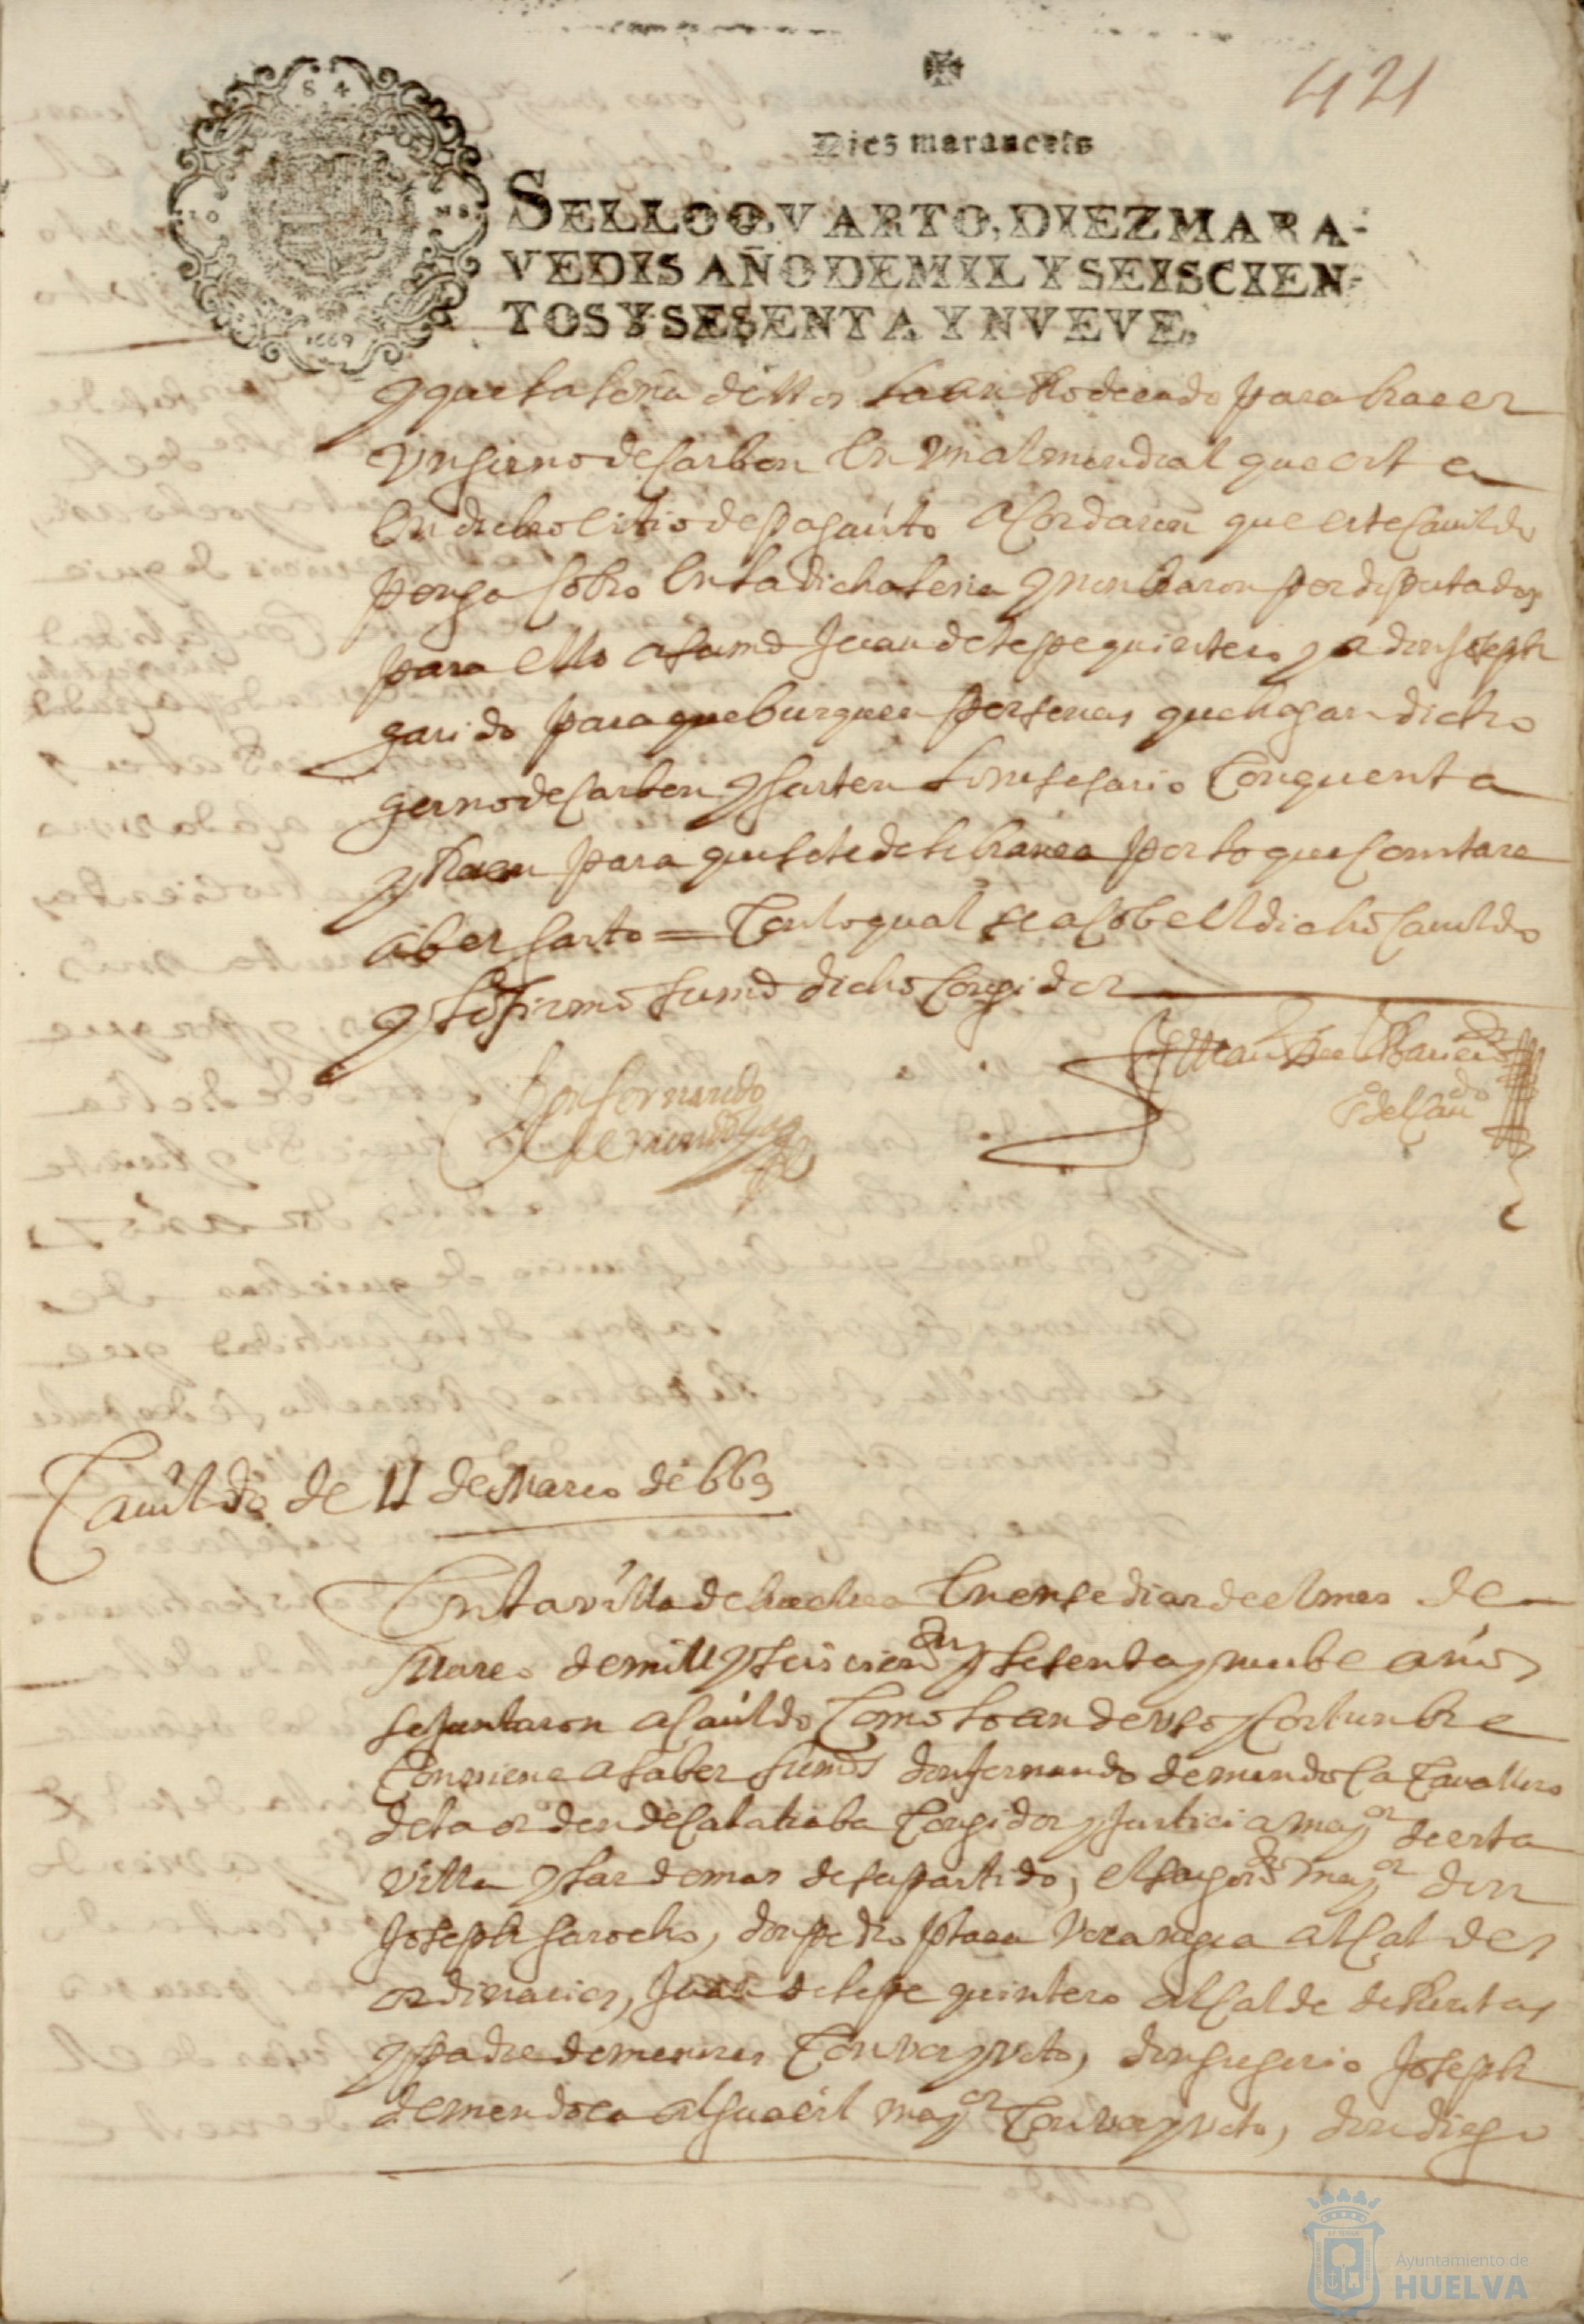 421
Dies marauedis
SELLO QVARTO, DIEZ MARA-
VEDIS AÑO DE MIL Y SEISCIEN-
TOS Y SESENTA Y NVEVE.
1669
y que la leña dellos la an Rodeado para hacer
un gurno de carbon en un almendral que est a
en dicho citio de acordaron que este cauildo
ponga cobro en la dicha leña y nonbraron por diputados
para ello a sumd Juan de lepe quintero y a don Joseph
garido para que busquen personas que hagan dicho
gurno de carbon y gasten lo nesesario con quenta
y Raçon para que se le de libranca por lo que constare
aber gasto = Con lo qual se acobe el dicho cauildo
y lo firmo sumd dicho Corregidor
Don fernando
de mendoça
Cauildo de 11 de Março de 669
En la villa de huelua en onse dias de el mes de
Março de mill y seiscientos y sesenta y nuebe años
se juntaron a cauildo Como lo an de vso y costunbre
Conuiene a saber sumds don fernando de mendoça Cauallero
de la orden de Calatraba Corregidor y Justicia mayor de esta
villa y las demas de su partido, el don
Joseph garocho, don pedro plaça Veranegra alcaldes
ordinarios, Juan de lepe quintero alcalde de Rentas
y padre de menores Con vos y voto, don gregorio Joseph
de mendoca alguacil mayor Con vos y voto, don diego
Ayuntamiento de
HUELVA